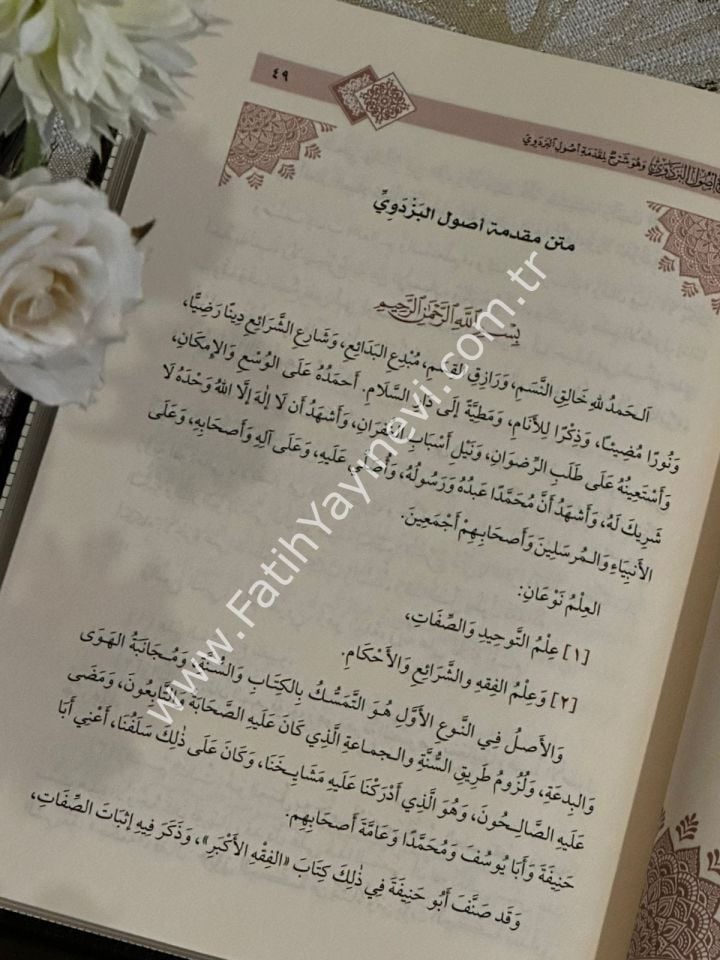 ٤٩
أصول البزدوي وهو شرح لمقدمة أصول البزدوي
متن مقدمة أصول البَزْدَوِيِّ
بِسْمِ ٱللَّهِ ٱلرَّحْمَٰنِ ٱلرَّحِيمِ
الـحَمدُ للهِ خَالِقِ النَّسَمِ، وَرَازِقِ القِسَمِ، مُبْدِعِ البَدَائِعِ، وَشَارِعِ الشَّرَائِعِ دِينًا رَضِيًّا،
وَنُورًا مُضِيئًا، وَذِكْرًا لِلأَنَامِ، وَمَطِيَّةً إِلَى دَارِ السَّلَامِ. أَحمَدُهُ عَلَى الوُسْعِ وَالإِمكَانِ،
وَأَسْتَعِينُهُ عَلَى طَلَبِ الرِّضوَانِ، وَنَيْلِ أَسْبَابِ الغُفرَانِ، وَأَشهَدُ أَن لَا إِلهَ إِلَّا اللهُ وَحْدَهُ لَا
شَرِيكَ لَهُ، وَأَشهَدُ أَنَّ مُحَمَّدًا عَبدُهُ وَرَسُولُهُ، وَأُصَلِّي عَلَيهِ، وَعَلَى آلِهِ وَأَصحَابِهِ، وَعَلَى
الأَنبِيَاءِ وَالـمُرسَلِينَ وَأَصحَابِـهِمْ أَجْمَعِينَ.
العِلْمُ نَوْعَانِ:
[١] عِلْمُ التَّوحِيدِ وَالصِّفَاتِ،
[٢] وَعِلْمُ الفِقهِ والشَّرَائِعِ وَالأَحْكَامِ.
وَالأَصلُ فِي النَّوعِ الأَوَّلِ هُـوَ التَّمَسُّكُ بِالكِتَابِ وَالسُّنَّةِ، وَمُـجَانَبَةُ الهَـوَى
وَالبِدعَةِ، وَلُزُومُ طَرِيقِ السُّنَّةِ والـجماعةِ الَّذِي كَانَ عَلَيهِ الصَّحَابَةُ وَالتَّابِعُونَ، وَمَضَى
عَلَيهِ الصَّالِـحُونَ، وَهُوَ الَّذِي أَدْرَكْنَا عَلَيهِ مَشَايِـخَنَا، وَكَانَ عَلَى ذٰلِكَ سَلَفُنَا، أَعْنِي أَبَا
حَنِيفَةَ وَأَبَا يُوسُفَ وَمُحَمَّدًا وَعَامَّةَ أَصحَابِهِم.
وَقَد صَنَّفَ أَبُو حَنِيفَةَ فِي ذٰلِكَ كِتَابَ «الفِقْهِ الأَكْبَرِ»، وَذَكَرَ فِيهِ إِثبَاتَ الصِّفَاتِ،
www.FatihYayinevi.com.tr